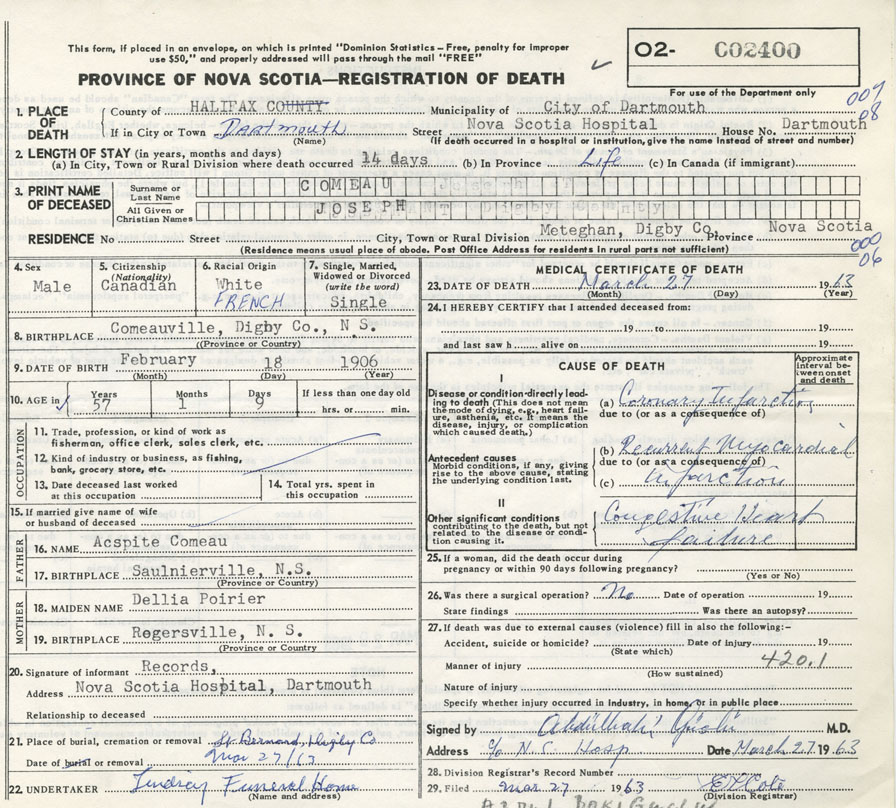 This form, if placed in an envelope, on which is printed "Dominion Statistics – Free, penalty for improper
use $50," and properly addressed will pass through the mail "FREE"
PROVINCE OF NOVA SCOTIA—REGISTRATION OF DEATH
02- C02400
For use of the Department only
007
08
1. PLACE OF DEATH
County of HALIFAX COUNTY Municipality of City of Dartmouth
If in City or Town Dartmouth Street Nova Scotia Hospital House No. Dartmouth
(Name) (If death occurred in a hospital or institution, give the name instead of street and number)
2. LENGTH OF STAY (in years, months and days)
(a) In City, Town or Rural Division where death occurred 14 days (b) In Province Life (c) In Canada (if immigrant)
3. PRINT NAME OF DECEASED
Surname or Last Name COMEAU
All Given or Christian Names JOSEPH
RESIDENCE No Street City, Town or Rural Division Meteghan, Digby Co, Province Nova Scotia
(Residence means usual place of abode. Post Office Address for residents in rural parts not sufficient)
000
06
4. Sex Male
5. Citizenship (Nationality) Canadian
6. Racial Origin White
FRENCH
7. Single, Married, Widowed or Divorced (write the word) Single
8. BIRTHPLACE Comeauville, Digby Co., N S.
(Province or Country)
9. DATE OF BIRTH February 18 1906
(Month) (Day) (Year)
10. AGE in Years 57 Months 1 Days 9 If less than one day old hrs. or min.
OCCUPATION
11. Trade, profession, or kind of work as
fisherman, office clerk, sales clerk, etc.
12. Kind of industry or business, as fishing,
bank, grocery store, etc.
13. Date deceased last worked
at this occupation
14. Total yrs. spent in
this occupation
15. If married give name of wife
or husband of deceased
FATHER
16. NAME Acspite Comeau
17. BIRTHPLACE Saulnierville, N.S.
(Province or Country)
MOTHER
18. MAIDEN NAME Dellia Poirier
19. BIRTHPLACE Rogersville, N. S.
(Province or Country
20. Signature of informant Records,
Address Nova Scotia Hospital, Dartmouth
Relationship to deceased
21. Place of burial, cremation or removal St Bernard, Digby Co
Date of burial or removal Mar 27/63
22. UNDERTAKER Lindsay Funeral Home
(Name and address)
MEDICAL CERTIFICATE OF DEATH
23. DATE OF DEATH March 27 1963
(Month) (Day) (Year)
24. I HEREBY CERTIFY that I attended deceased from:
19 to 19
and last saw h alive on 19
CAUSE OF DEATH
Approximate interval between onset and death
I
Disease or condition-directly leading to death (This does not mean the mode of dying, e.g., heart failure, asthenia, etc. It means the disease, injury, or complication which caused death.)
(a) Coronary Infarction
due to (or as a consequence of)
Antecedent causes
Morbid conditions, if any, giving rise to the above cause, stating the underlying condition last.
(b) Recurrent Myocardial
due to (or as a consequence of)
(c) infarction
II
Other significant conditions
contributing to the death, but not related to the disease or condition causing it.
Congestive Heart
failure
25. If a woman, did the death occur during
pregnancy or within 90 days following pregnancy?
(Yes or No)
26. Was there a surgical operation? No Date of operation 19
State findings Was there an autopsy?
27. If death was due to external causes (violence) fill in also the following:–
Accident, suicide or homicide? Date of injury 19
(State which)
420.1
Manner of injury
(How sustained)
Nature of injury
Specify whether injury occurred in Industry, in home, or in public place
Signed by M.D.
Address c/o N.S. Hosp Date March 27 1963
28. Division Registrar's Record Number
29. Filed Mar 27 1963
(Division Registrar)